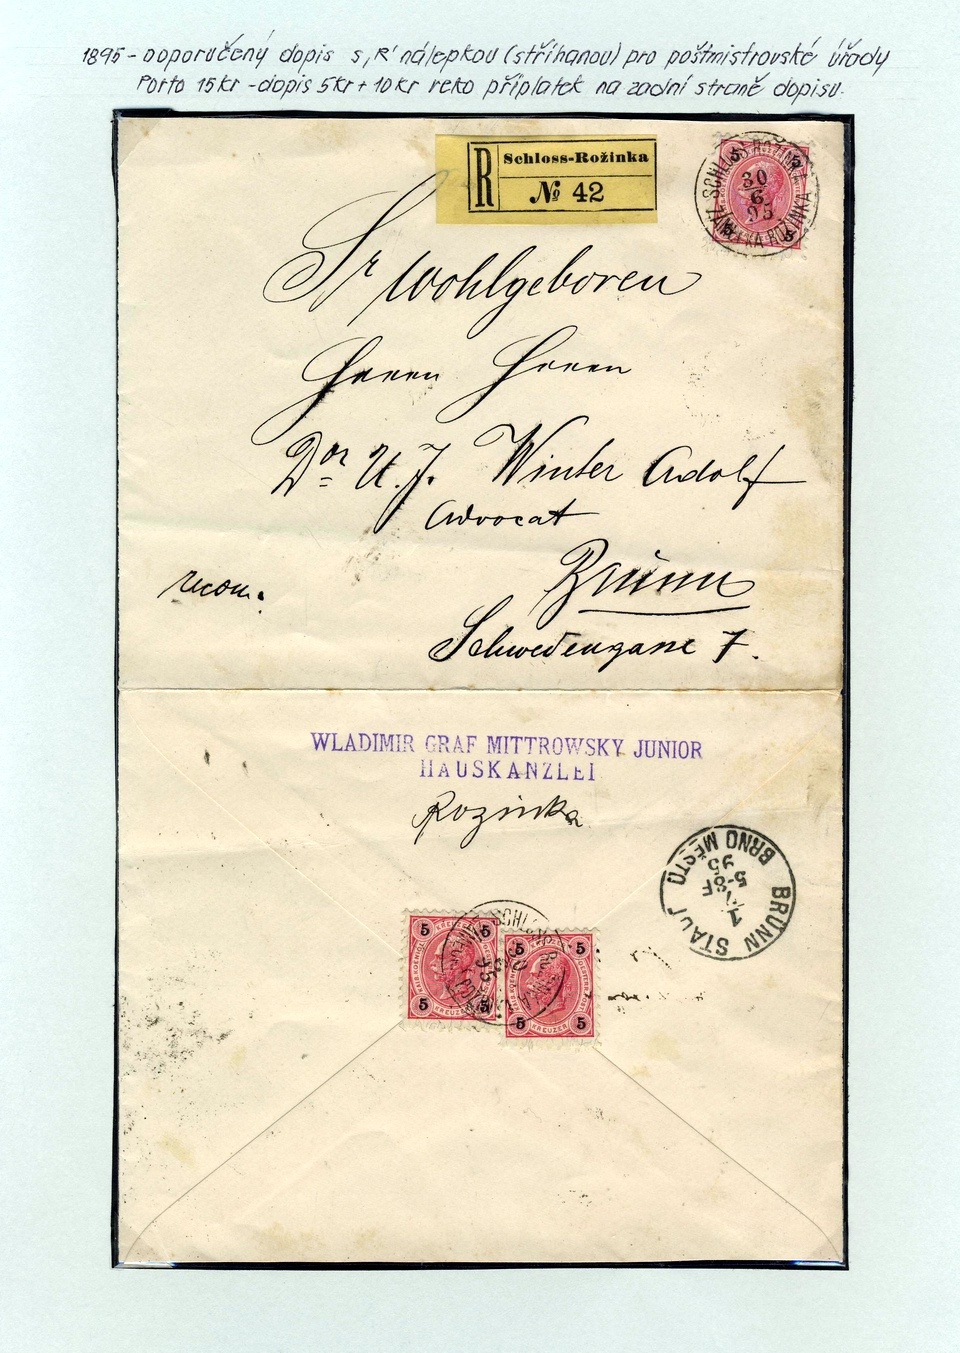 1895 - doporučený dopis s „R" nálepkou (stříhanou) pro poštmistrovské úřady
Porto 15kr - dopis 5kr + 10kr reko příplatek na zadní straně dopisu.
R
Schloss-Rožinka
№ 42
SCHLOSS ROŽINKA
30
6
95
ZÁMEK ROŽINKA
5
5
5
5
Sr Wohlgeboren
Herrn Herrn
Dor U. J. Winter Adolf
Advocat
Brünn
recom.
Schwedengasse 7.
WLADIMIR GRAF MITTROWSKY JUNIOR
HAUSKANZLEI
Rozinka
BRÜNN STADT
1
7
5-8F
95
BRNO MĚSTO
5
5
5
5
KREUZER
5
5
5
5
KREUZER